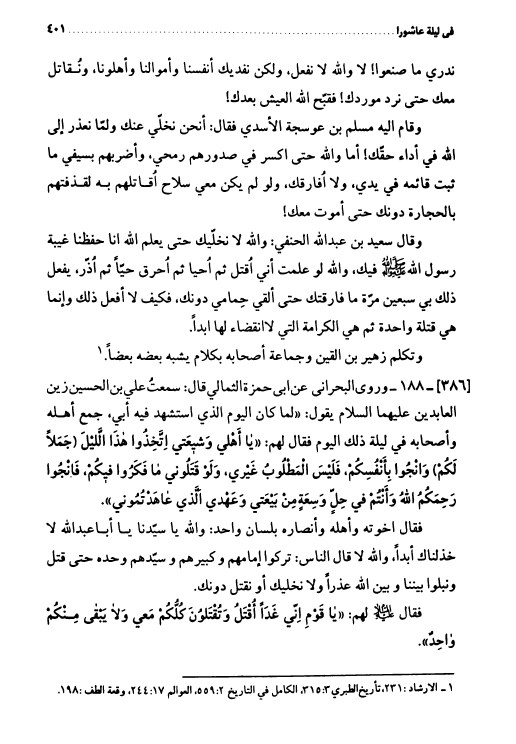 في ليلة عاشورا ........................................ ٤٠١
ندري ما صنعوا! لا والله لا نفعل، ولكن نفديك أنفسنا وأموالنا وأهلونا، ونُـقـاتل
معك حتى نرد موردك! فقبّح الله العيش بعدك!
وقام اليه مسلم بن عوسجة الأسدي فقال: أنحن نخلّي عنك ولمّا نعذر إلى
الله في أداء حقّك! أما والله حتى اكسر في صدورهم رمحي، وأضربهم بسيفي ما
ثبت قائمه في يدي، ولا اُفارقك، ولو لم يكن معي سلاح اُقـاتلهم بـه لقـذفتهم
بالحجارة دونك حتى أموت معك!
وقال سعيد بن عبدالله الحنفي: والله لا نخلّيك حتى يعلم الله انا حفظنا غيبة
رسول الله ﷺ فيك، والله لو علمت أني اُقتل ثم اُحيا ثم اُحرق حيّاً ثم اُذّر، يفعل
ذلك بي سبعين مرّة ما فارقتك حتى ألقي حِمامي دونك، فكيف لا أفعل ذلك وإنما
هي قتلة واحدة ثم هي الكرامة التي لاانقضاء لها ابداً.
وتكلم زهير بن القين وجماعة أصحابه بكلام يشبه بعضه بعضاً.١
[٣٨٦] ـ ١٨٨ ـ وروى البحرانى عن ابى حمزة الثمالي قال: سمعتُ علي بن الحسين زين
العابدين عليهما السلام يقول: «لما كان اليوم الذي استشهد فيه أبي، جمع أهـله
وأصحابه في ليلة ذلك اليوم فقال لهم: «يٰا أَهْلي وَشيعَتي اِتَّخِذُوا هٰذَا اللَّيْلَ (جَمَلاً
لَكُمْ) وَانْجُوا بِأَنْفُسِكُمْ، فَلَيْسَ الْمَطْلُوبُ غَيْري، وَلَوْ قَتَلُوني مٰا فَكَرُوا فيكُمْ، فَانْجُوا
رَحِمَكُمُ اللهُ وَأَنْتُمْ في حِلٍّ وَسِعَةٍ مِنْ بَيْعَتي وَعَهْدي الَّذي عٰاهَدْتُمُوني».
فقال اخوته وأهله وأنصاره بلسان واحد: والله يا سيّدنا يـا أبـاعبدالله لا
خذلناك أبداً، والله لا قال الناس: تركوا إمامهم وكبيرهم و سيّدهم وحده حتى قتل
ونبلوا بيننا و بين الله عذراً ولا نخليك أو نقتل دونك.
فقال ﷷ لهم: «يٰا قَوْمِ إِنّي غَداً اُقْتَلُ وَتُقْتَلوُنَ كُلُّكُمْ مَعي وَلاٰ يَبْقى مِـنْكُمْ
وٰاحِدٌ».
١ ـ الارشاد :٢٣١، تأريخ الطبري ٣:٣١٥، الكامل في التاريخ ٢:٥٥٩، العوالم ١٧:٢٤٤، وقعة الطف :١٩٨.